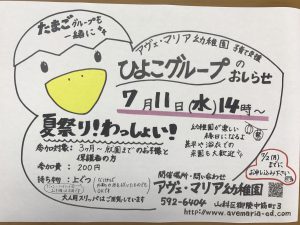 たまごグループも
一緒に
アヴェ・マリア幼稚園 子育て支援
ひよこグループの
おしらせ
7月11日(水)14時〜
夏祭り!わっしょい!
幼稚園が楽しい
縁日になるよ
甚平や浴衣での
来園も大歓迎
参加対象: 3ヶ月〜就園までのお子様と
保護者の方
参加費: 200円
持ち物: 上ぐつ
大人用スリッパはご用意しています
7/2(月)
までに
お申し込み下さい
開催場所・問い合わせ
アヴェ・マリア幼稚園
592-6404 山科区御陵中筋町3
http://www.avemaria-ed.com